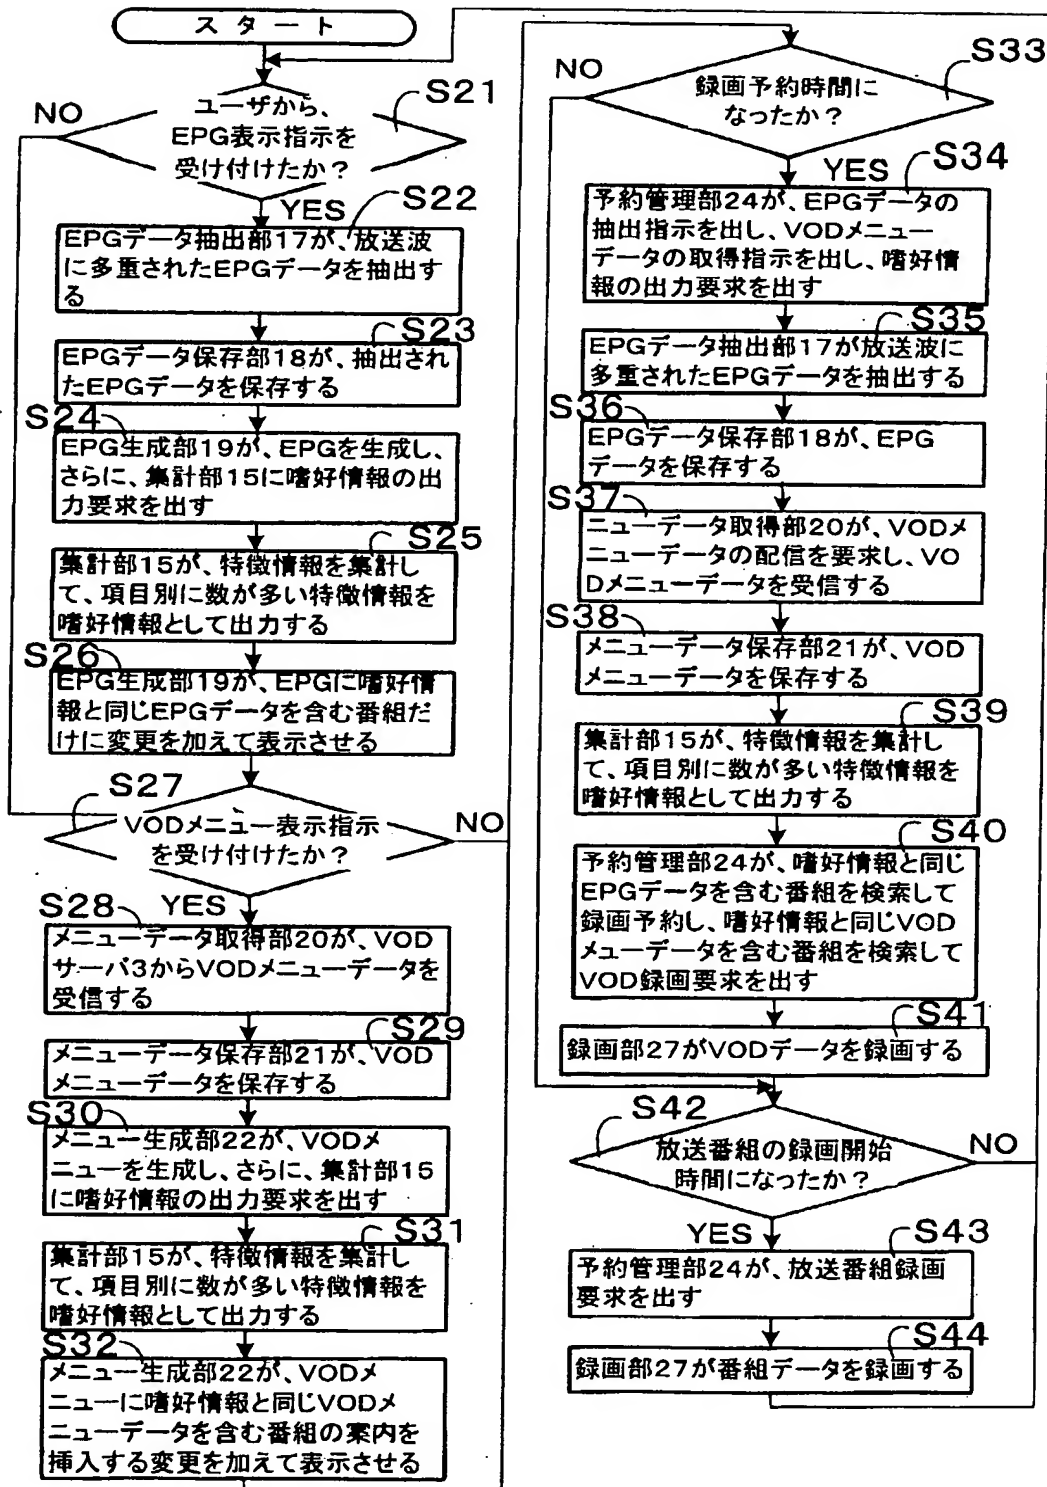 スタート
S21
NO
ユーザから、
EPG表示指示を
受け付けたか?
YES
S22
EPGデータ抽出部17が、放送波
に多重されたEPGデータを抽出す
る
S23
EPGデータ保存部18が、抽出され
たEPGデータを保存する
S24
EPG生成部19が、EPGを生成し、
さらに、集計部15に嗜好情報の出
力要求を出す
S25
集計部15が、特徴情報を集計し
て、項目別に数が多い特徴情報を
嗜好情報として出力する
S26
EPG生成部19が、EPGに嗜好情
報と同じEPGデータを含む番組だ
けに変更を加えて表示させる
S27
VODメニュー表示指示
を受け付けたか?
NO
YES
S28
メニューデータ取得部20が、VOD
サーバ3からVODメニューデータを
受信する
S29
メニューデータ保存部21が、VOD
メニューデータを保存する
S30
メニュー生成部22が、VODメ
ニューを生成し、さらに、集計部15
に嗜好情報の出力要求を出す
S31
集計部15が、特徴情報を集計し
て、項目別に数が多い特徴情報を
嗜好情報として出力する
S32
メニュー生成部22が、VODメ
ニューに嗜好情報と同じVODメ
ニューデータを含む番組の案内を
挿入する変更を加えて表示させる
S33
NO
録画予約時間に
なったか?
YES
S34
予約管理部24が、EPGデータの
抽出指示を出し、VODメニュー
データの取得指示を出し、嗜好情
報の出力要求を出す
S35
EPGデータ抽出部17が放送波に
多重されたEPGデータを抽出する
S36
EPGデータ保存部18が、EPG
データを保存する
S37
ニューデータ取得部20が、VODメ
ニューデータの配信を要求し、VO
Dメニューデータを受信する
S38
メニューデータ保存部21が、VOD
メニューデータを保存する
S39
集計部15が、特徴情報を集計し
て、項目別に数が多い特徴情報を
嗜好情報として出力する
S40
予約管理部24が、嗜好情報と同じ
EPGデータを含む番組を検索して
録画予約し、嗜好情報と同じVOD
メューデータを含む番組を検索して
VOD録画要求を出す
S41
録画部27がVODデータを録画する
S42
放送番組の録画開始
時間になったか?
NO
YES
S43
予約管理部24が、放送番組録画
要求を出す
S44
録画部27が番組データを録画する